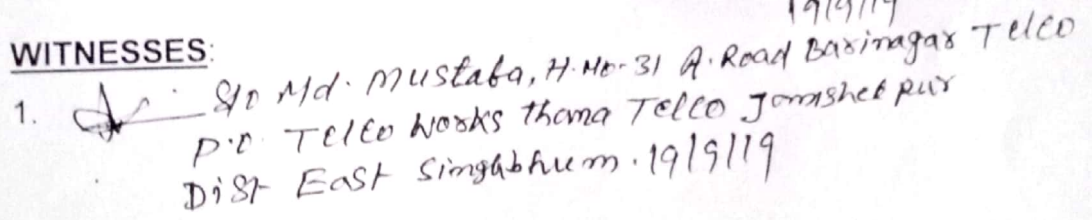 19/9/19
WITNESSES:
1. S/o Md. Mustafa, H.No-31 A.Road Barinagar Telco
P.O. Telco Works thana Telco Jamshedpur
Dist East Singhbhum. 19/9/19